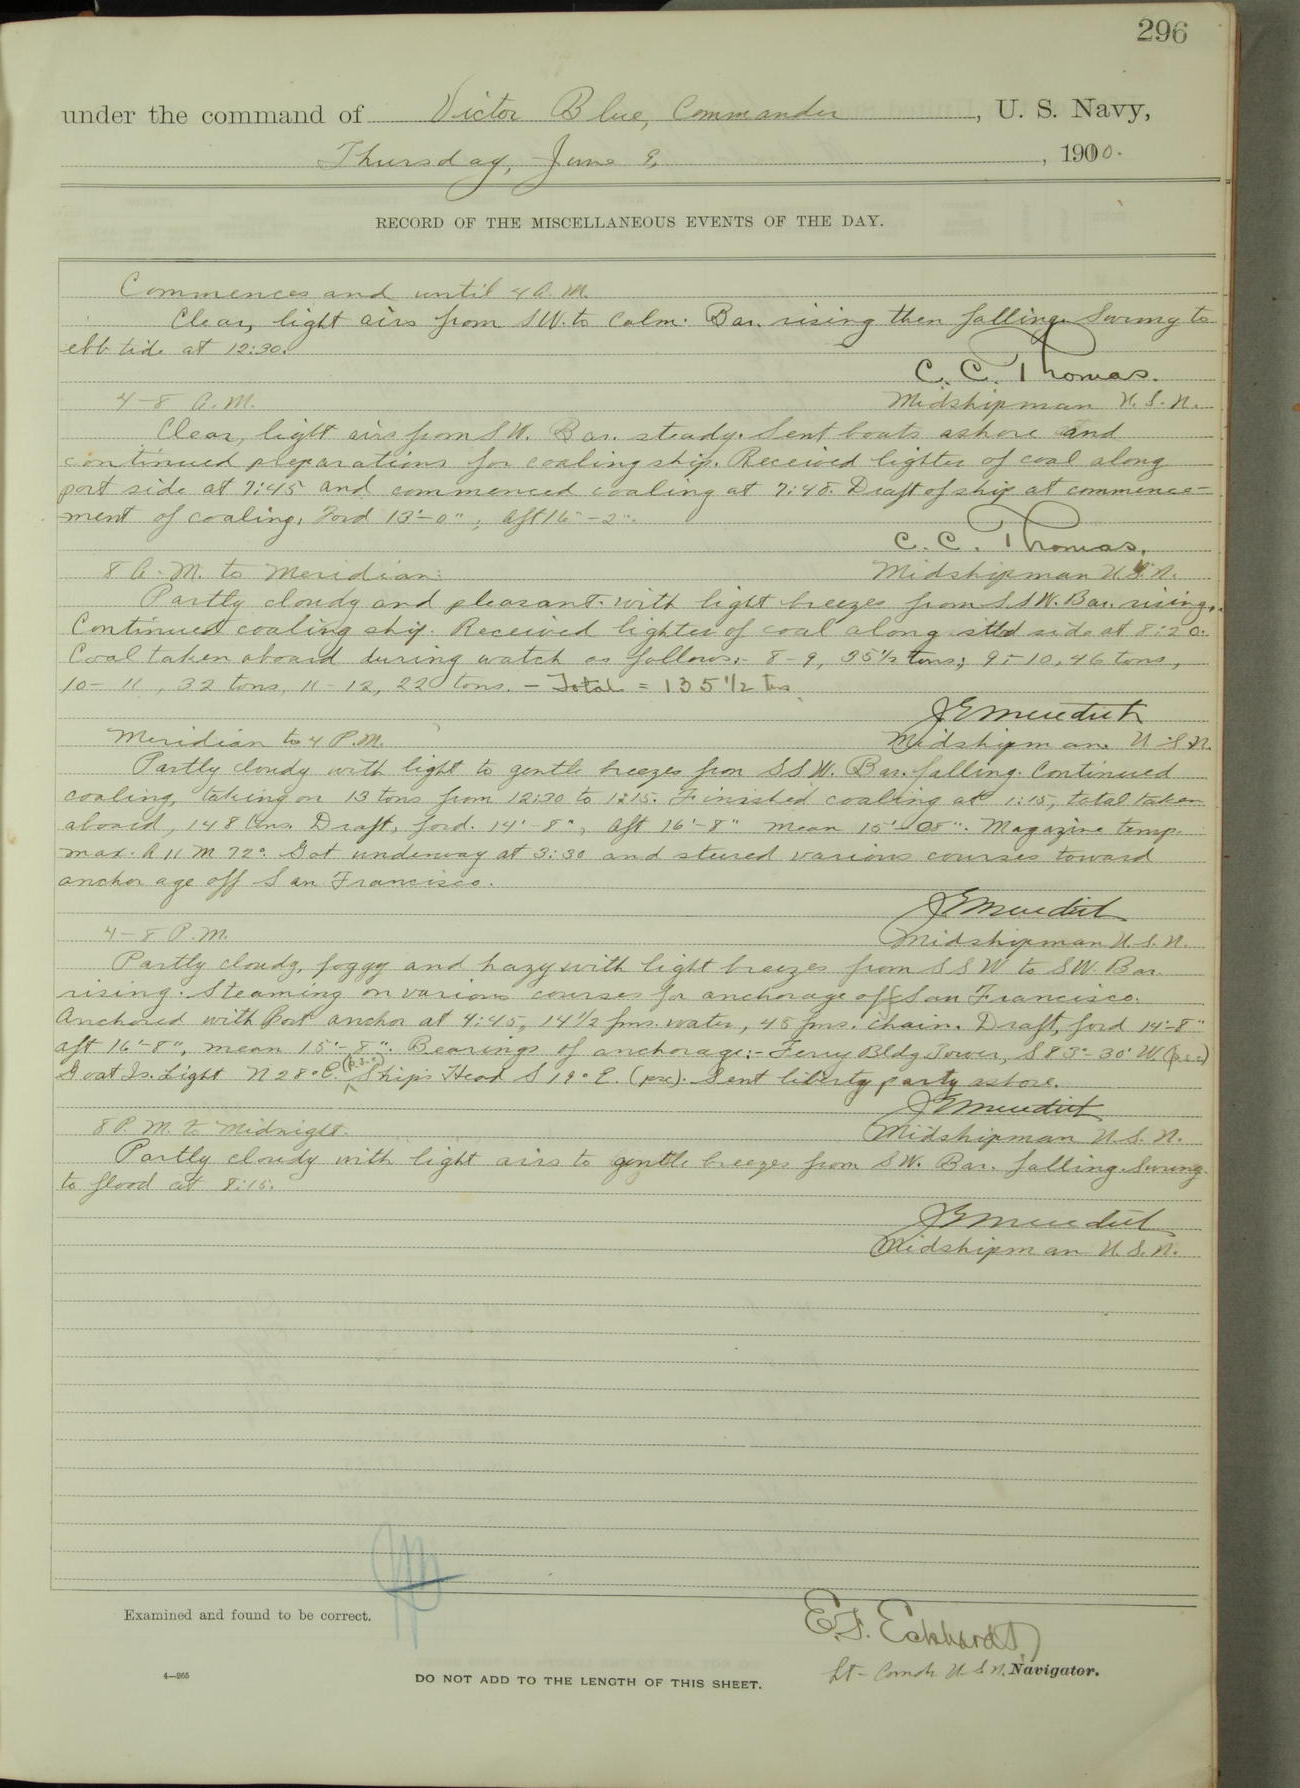 296
under the command of Victor Blue, Commander, U. S. Navy,
Thursday, June 9, 1910.
RECORD OF THE MISCELLANEOUS EVENTS OF THE DAY.
Commences and until 4 A.M.
Clear, light airs from SW. to Calm. Bar. rising then falling. Swung to
ebb tide at 12:30.
C. C. Thomas.
Midshipman U.S.N.
4-8 A.M.
Clear, light airs from SW. Bar. steady. Sent boats ashore and
continued preparations for coaling ship. Received lighter of coal along
port side at 7:45 and commenced coaling at 7:48. Draft of ship at commence-
ment of coaling, Ford 13'-0", Aft 16'-2".
C. C. Thomas,
Midshipman U.S.N.
8 A.M. to Meridian:
Partly cloudy and pleasant with light breezes from SSW. Bar. rising.
Continued coaling ship. Received lighter of coal along stbd side at 8:20.
Coal taken aboard during watch as follows:- 8-9, 35½ tons; 9-10, 46 tons,
10-11, 32 tons, 11-12, 22 tons. - Total = 135 1/2 tns.
J E Meredith
Midshipman U.S.N.
Meridian to 4 P.M.
Partly cloudy with light to gentle breezes from SSW. Bar. falling. Continued
coaling, taking on 13 tons from 12:30 to 1:15. Finished coaling at 1:15, total taken
aboard, 148 tns. Draft, ford. 14'-8", aft 16'-8" mean 15'-08". Magazine temp.
max. A 11 M 72°. Got underway at 3:30 and steered various courses toward
anchorage off San Francisco.
J E Meredith
Midshipman U.S.N.
4-8 P.M.
Partly cloudy, foggy and hazy with light breezes from SSW to SW. Bar.
rising. Steaming on various courses for anchorage off San Francisco.
Anchored with Port anchor at 4:45, 14 1/2 fms. water, 45 fms. chain. Draft, ford 14'-8"
aft 16'-8", mean 15'-8". Bearings of anchorage:- Ferry Bldg Tower, S 83°-30' W (psc)
Goat Is. Light N 28° E (p.s.c) Ship's Head S 19° E. (psc). Sent liberty party ashore.
J E Meredith
Midshipman U.S.N.
8 P.M. to Midnight.
Partly cloudy with light airs to gentle breezes from SW. Bar. falling. Swung
to flood at 8:15.
J E Meredith
Midshipman U.S.N.
Examined and found to be correct.
E. F. Eckhardt,
Lt-Comdr U S N. Navigator.
4—265
DO NOT ADD TO THE LENGTH OF THIS SHEET.